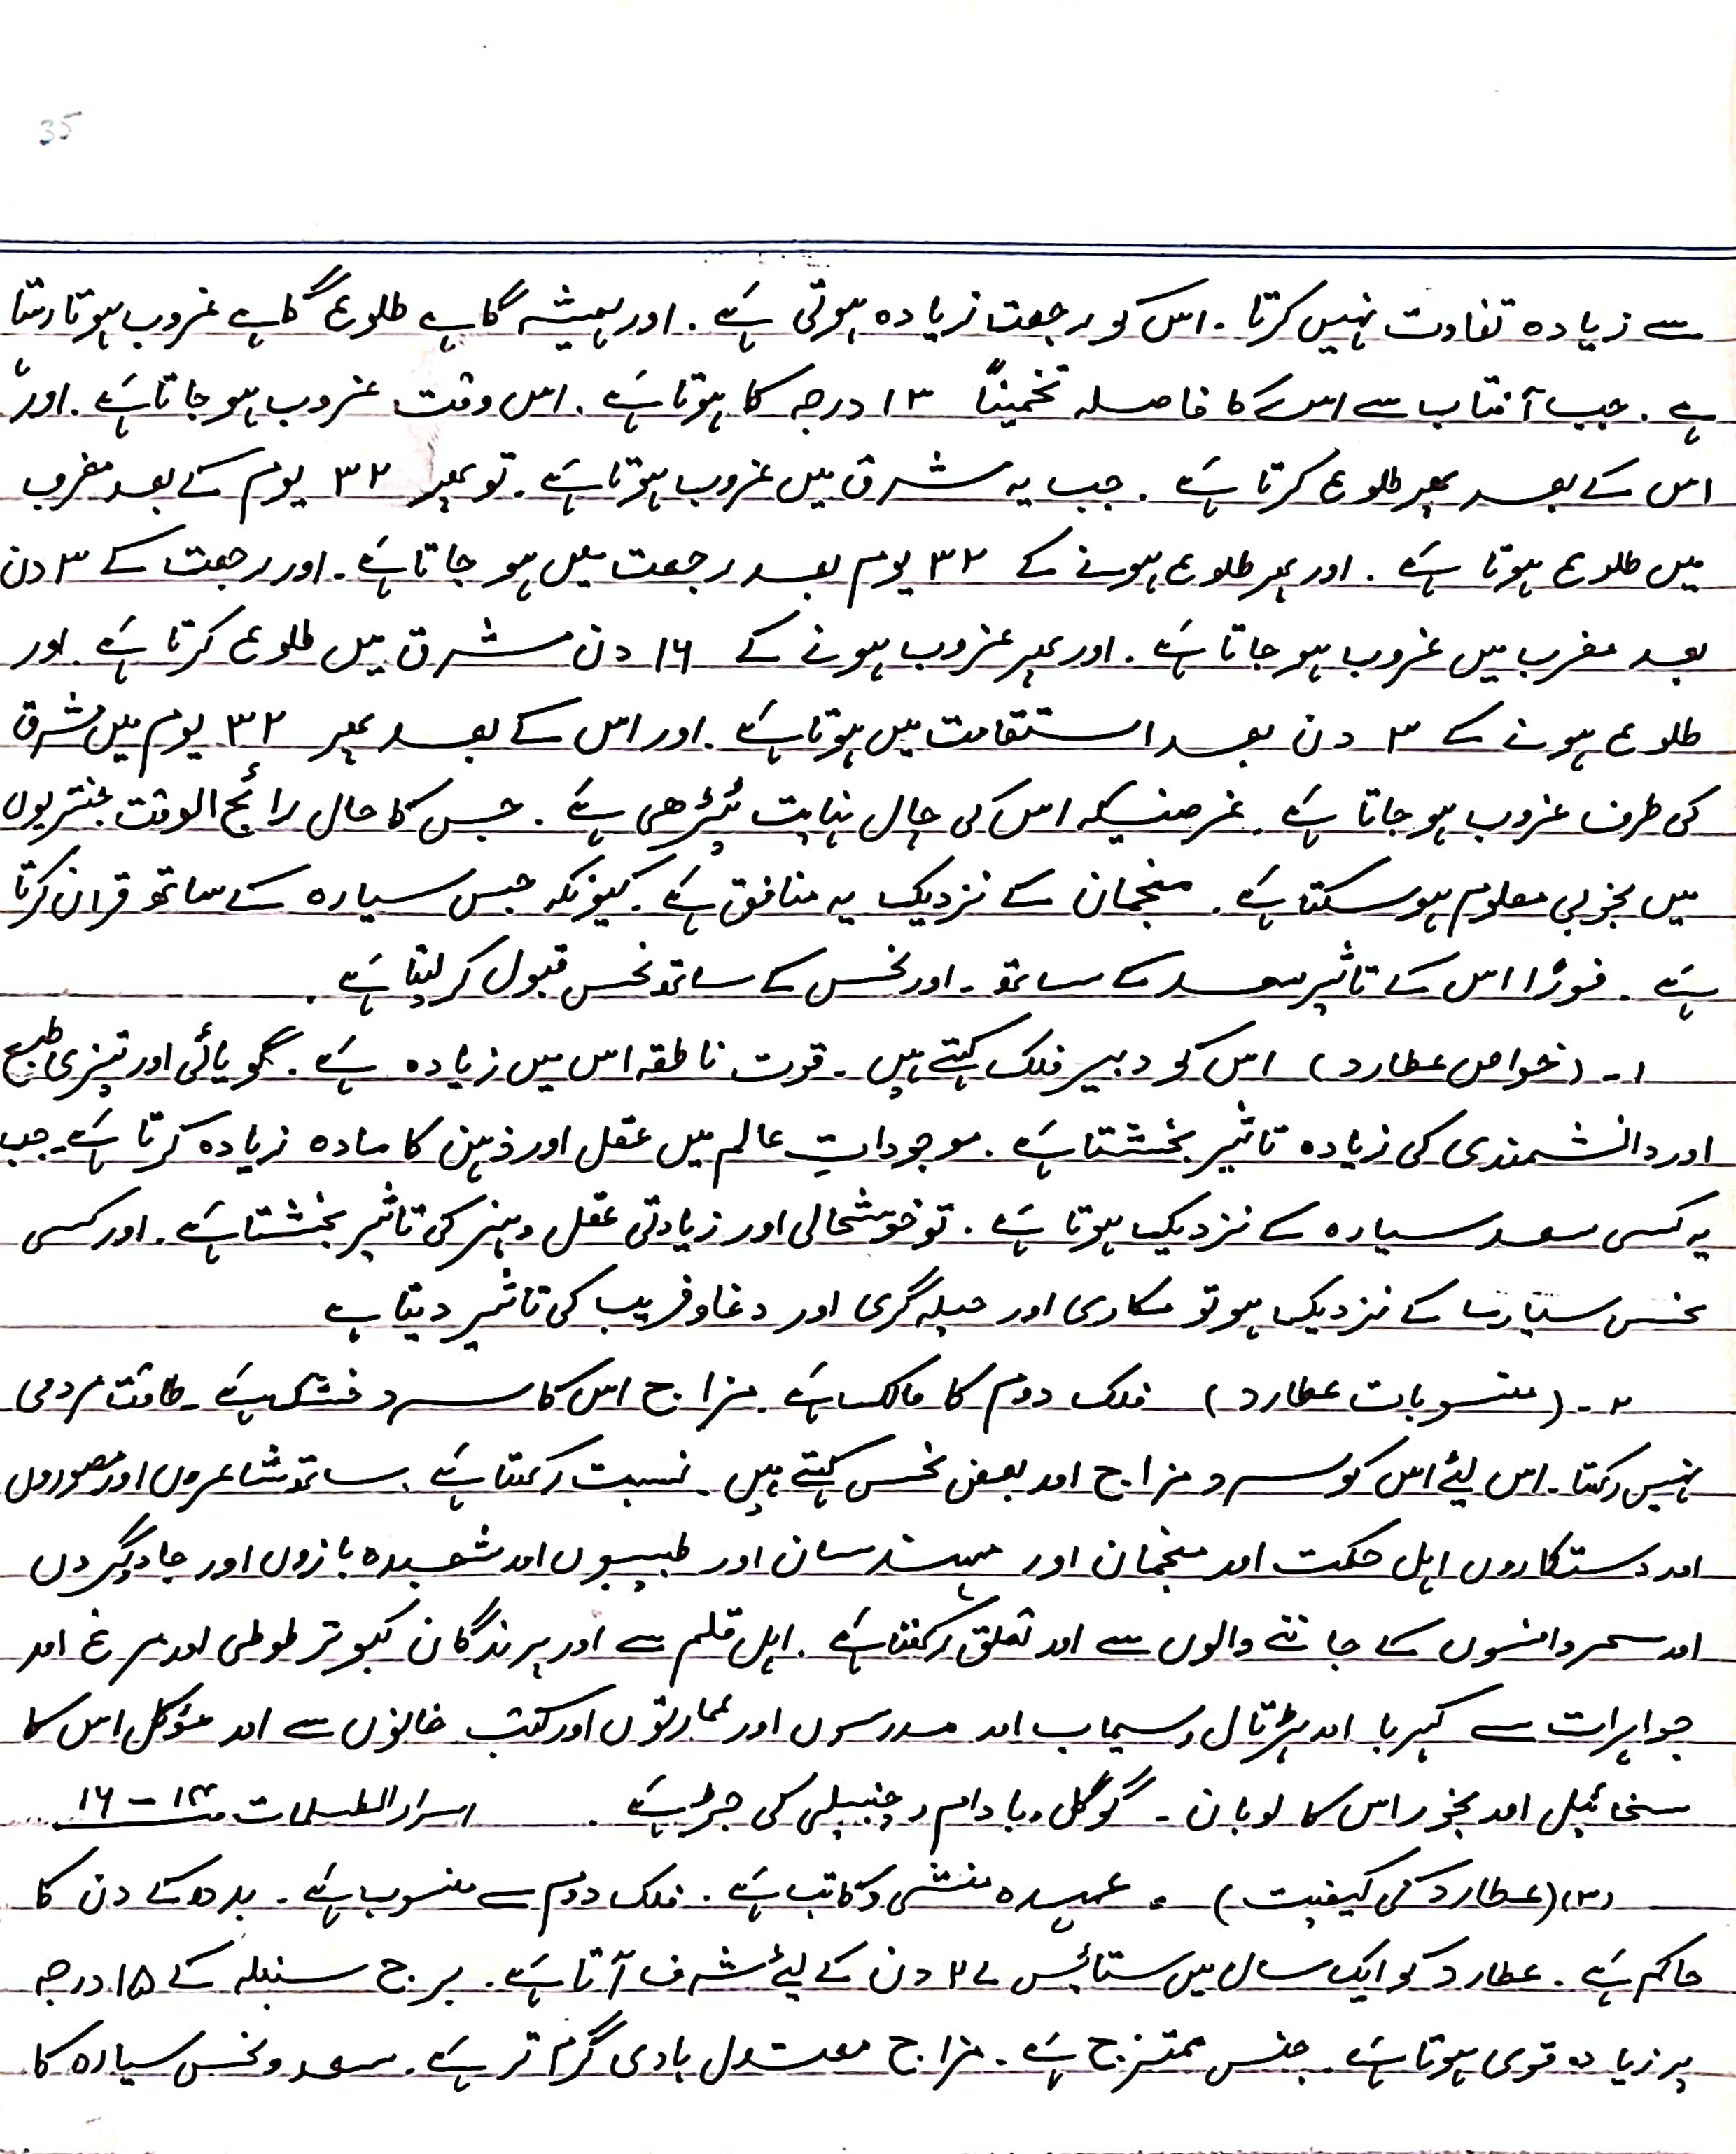 35
سے زیادہ تفاوت نہیں کرتا ۔ اس کو رجعت زیادہ ہوتی ہے ۔ اور ہمیشہ گاہے طلوع گاہے غروب ہوتا رہتا
ہے ۔ جب آفتاب سے اس کا فاصلہ تخمیناً ۱۳ درجہ کا ہوتا ہے ۔ اس وقت غروب ہو جاتا ہے ۔ اور
اس کے بعد پھر طلوع کرتا ہے ۔ جب یہ مشرق میں غروب ہوتا ہے ۔ تو پھر ۳۲ یوم کے بعد مغرب
میں طلوع ہوتا ہے ۔ اور پھر طلوع ہونے کے ۳۲ یوم بعد رجعت میں ہو جاتا ہے ۔ اور رجعت کے ۳ دن
بعد مغرب میں غروب ہو جاتا ہے ۔ اور پھر غروب ہونے کے ۱۶ دن مشرق میں طلوع کرتا ہے ۔ اور
طلوع ہونے کے ۳ دن بعد استقامت میں ہوتا ہے ۔ اور اس کے بعد پھر ۳۲ یوم میں مشرق
کی طرف غروب ہو جاتا ہے ۔ غرضیکہ اس کی چال نہایت ٹیڑھی ہے ۔ جس کا حال رائج الوقت جنتریوں
میں بخوبی معلوم ہو سکتا ہے ۔ منجمان کے نزدیک یہ منافق ہے ۔ کیونکہ جس سیارہ کے ساتھ قران کرتا
ہے ۔ فوراً اس کے تاثیر سعد کے ساتھ ۔ اور نحس کے ساتھ نحس قبول کر لیتا ہے ۔
۱ ۔ (خواص عطارد) اس کو دبیر فلک کہتے ہیں ۔ قوت ناطقہ اس میں زیادہ ہے ۔ گویائی اور تیزی طبع
اور دانشمندی کی زیادہ تاثیر بخشتا ہے ۔ موجوداتِ عالم میں عقل اور ذہین کا مادہ زیادہ کرتا ہے ۔ جب
یہ کسی سعد سیارہ کے نزدیک ہوتا ہے ۔ تو خوشحالی اور زیادتی عقل و ہنر کی تاثیر بخشتا ہے ۔ اور کسی
نحس کے نزدیک ہو تو مکاری اور حیلہ گری اور دغا و فریب کی تاثیر دیتا ہے
۲ ۔ (منسوبات عطارد) فلک دوم کا مالک ہے ۔ مزاج اس کا سرد خشک ہے ۔ طاقت مردمی
نہیں رکھتا ۔ اس لئے اس کو سرد مزاج اور بعض نحس کہتے ہیں ۔ نسبت رکھتا ہے ۔ ساتھ شاعروں اور مصوروں
اور دستکاروں اہل حکمت اور منجمان اور مہندسان اور طبیبوں اور شعبدہ بازوں اور جادوگروں
اور سحر و افسوں کے جاننے والوں سے اور تعلق رکھتا ہے ۔ اہل قلم سے اور پرندگان کبوتر طوطی اور مرغ اور
جواہرات سے کہربا اور ہڑتال و سیماب اور مدرسوں اور عمارتوں اور کتب خانوں سے اور مؤکل اس کا
سخائیل اور بخور اس کا لوبان ۔ گوگل و بادام و چنبیلی کی جڑ ہے ۔ اسرار الطلسمات ۱۴ - ۱۶
(۳) (عطارد کی کیفیت) ۔ عہدہ منشی و کاتب ہے ۔ فلک دوم سے منسوب ہے ۔ بدھ کے دن کا
حاکم ہے ۔ عطارد کو ایک سال میں ستائیس ۲۷ دن کے لئے شرف آتا ہے ۔ برج سنبلہ کے ۱۵ درجہ
پر زیادہ قوی ہوتا ہے ۔ جنس ممتزج ہے ۔ مزاج معتدل بادی گرم تر ہے ۔ سعد و نحس سیارہ کا